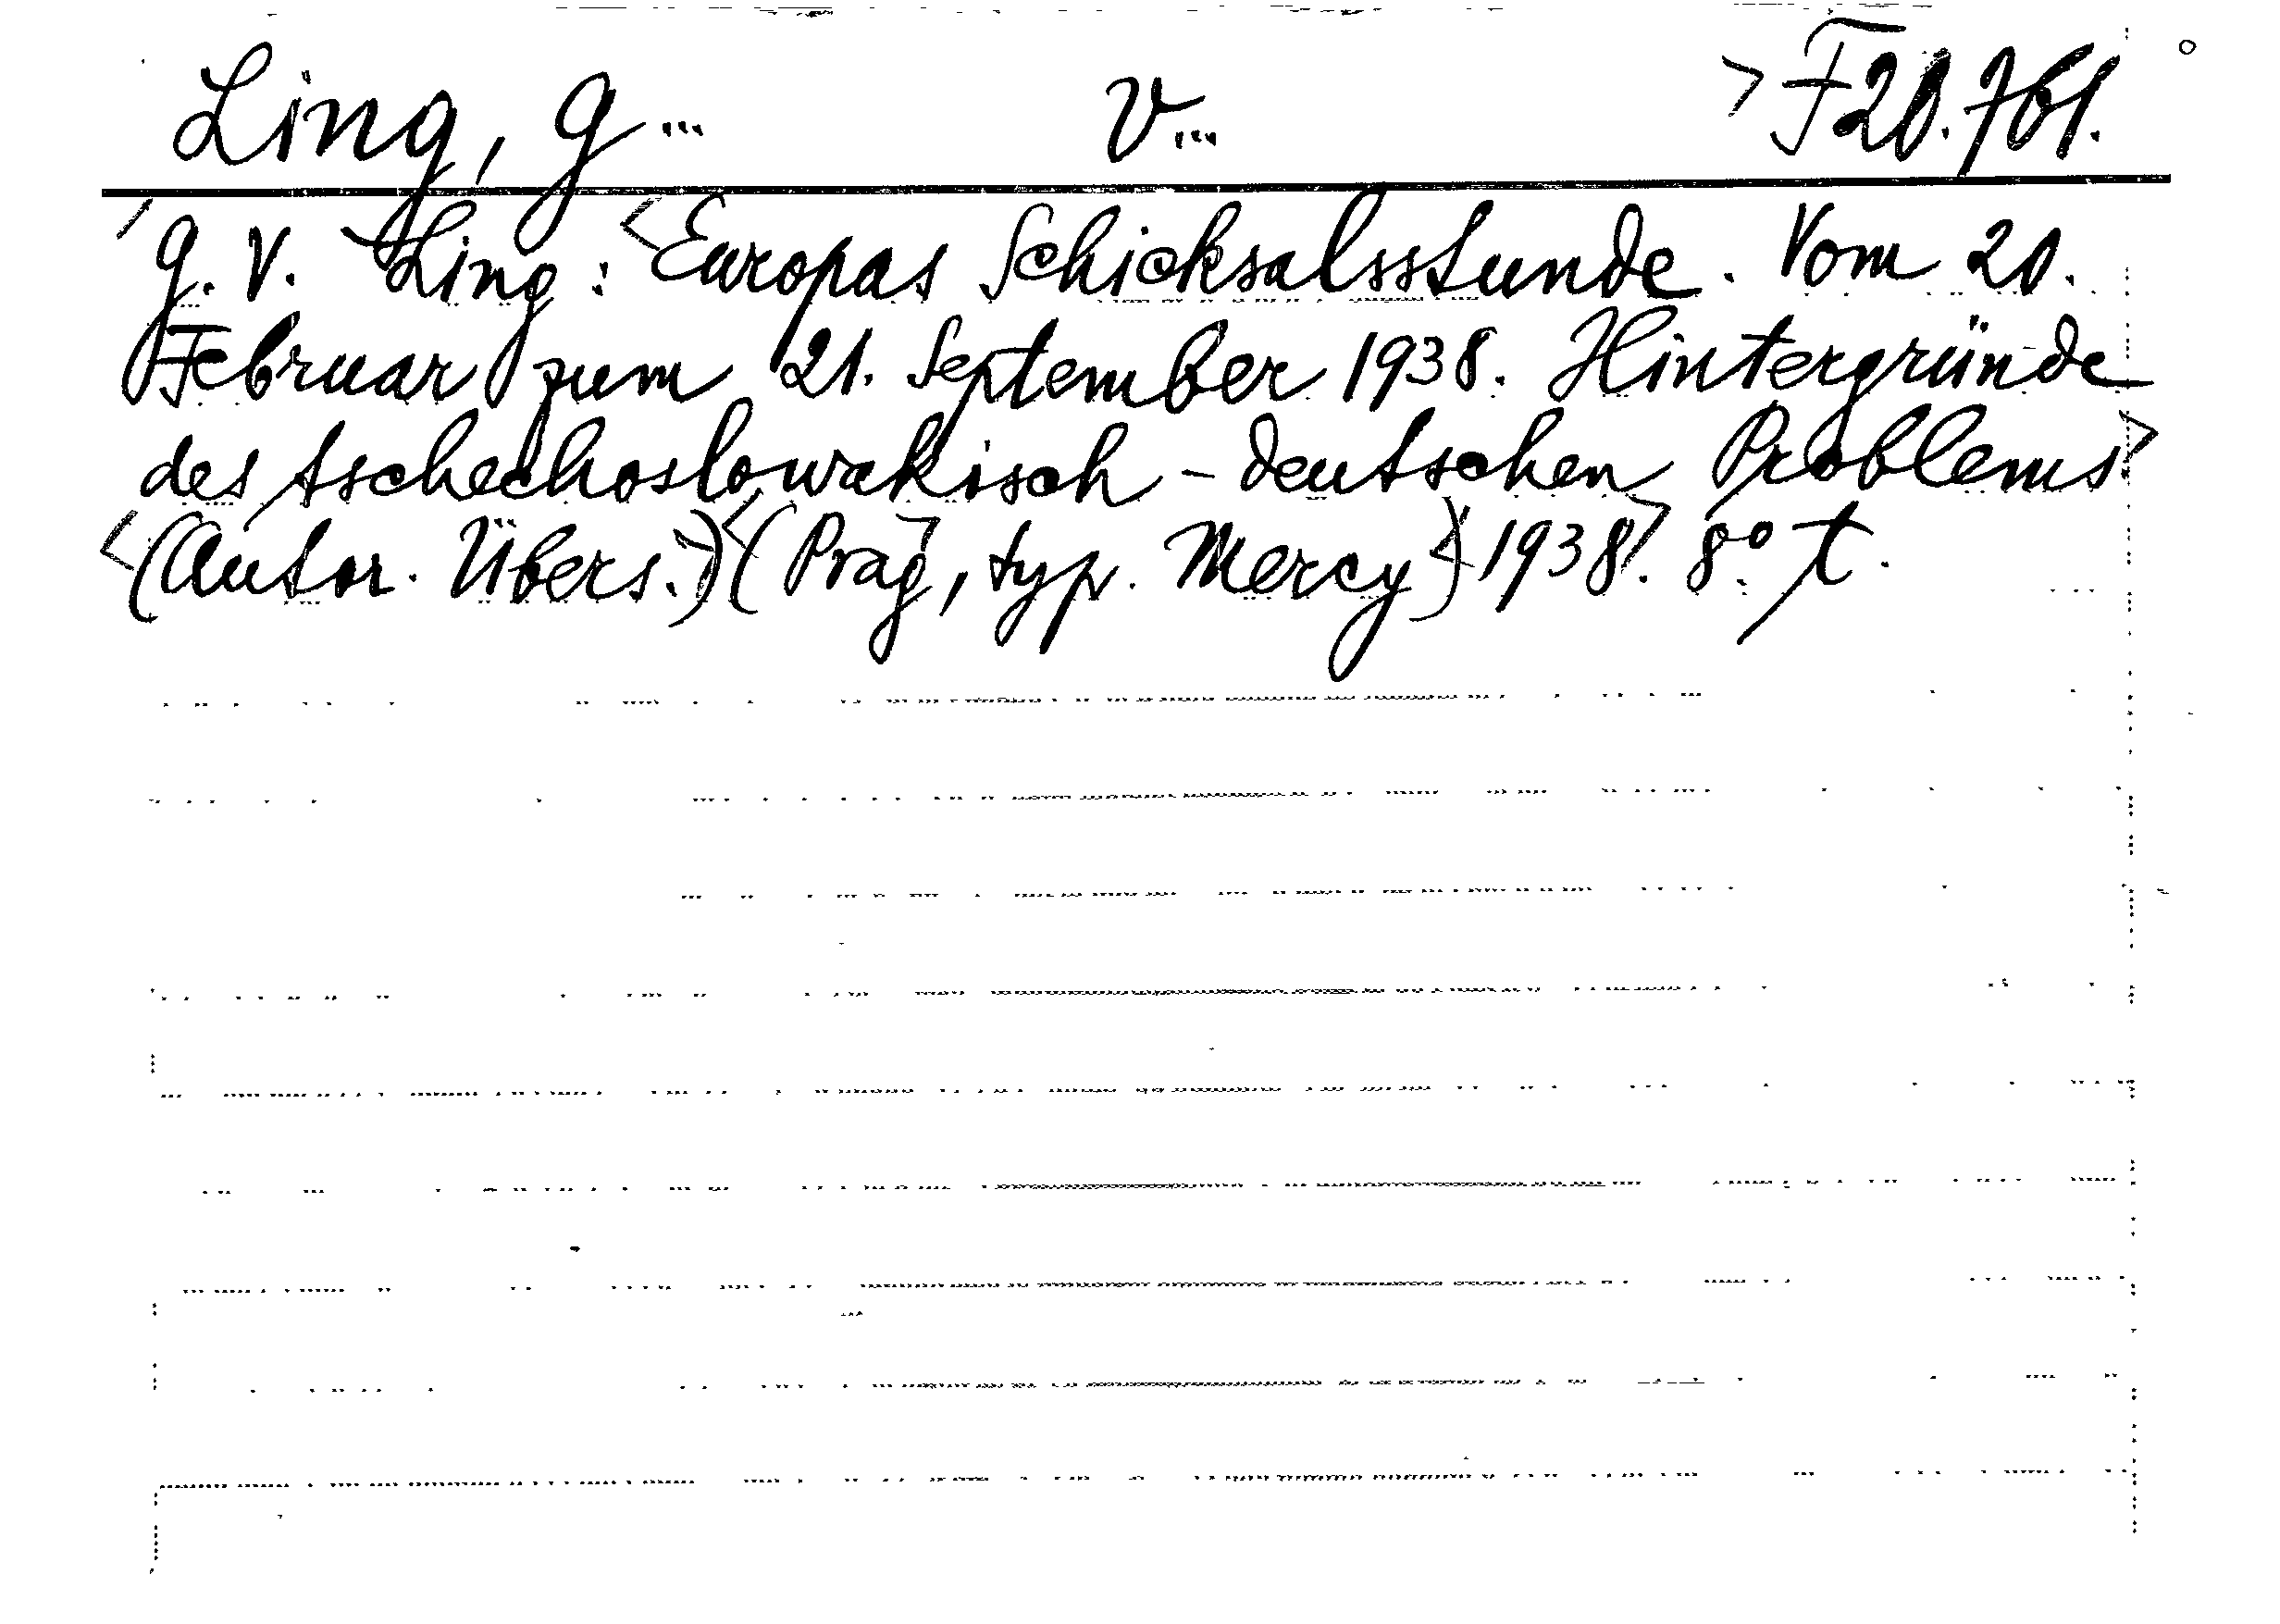 Ling, G... V... F20.761.
G. V. Ling: Europas Schicksalsstunde. Vom 20.
Februar zum 21. September 1938. Hintergründe
des tschechoslowakisch-deutschen Problems
(Autor. Übers.) (Prag, typ. Mercy) 1938. 8° t.